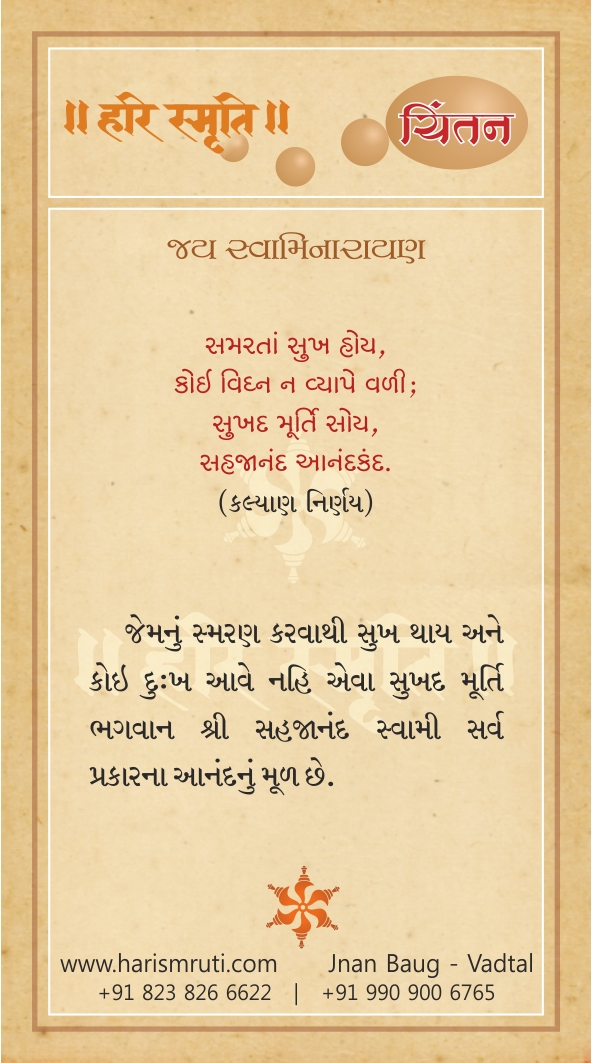 ॥ હરિ સ્મૃતિ ॥
ચિંતન
જય સ્વામિનારાયણ
સમરતાં સુખ હોય,
કોઈ વિઘ્ન ન વ્યાપે વળી;
સુખદ મૂર્તિ સોય,
સહજાનંદ આનંદકંદ.
(કલ્યાણ નિર્ણય)
જેમનું સ્મરણ કરવાથી સુખ થાય અને
કોઇ દુઃખ આવે નહિ એવા સુખદ મૂર્તિ
ભગવાન શ્રી સહજાનંદ સ્વામી સર્વ
પ્રકારના આનંદનું મૂળ છે.
www.harismruti.com Jnan Baug - Vadtal
+91 823 826 6622 | +91 990 900 6765